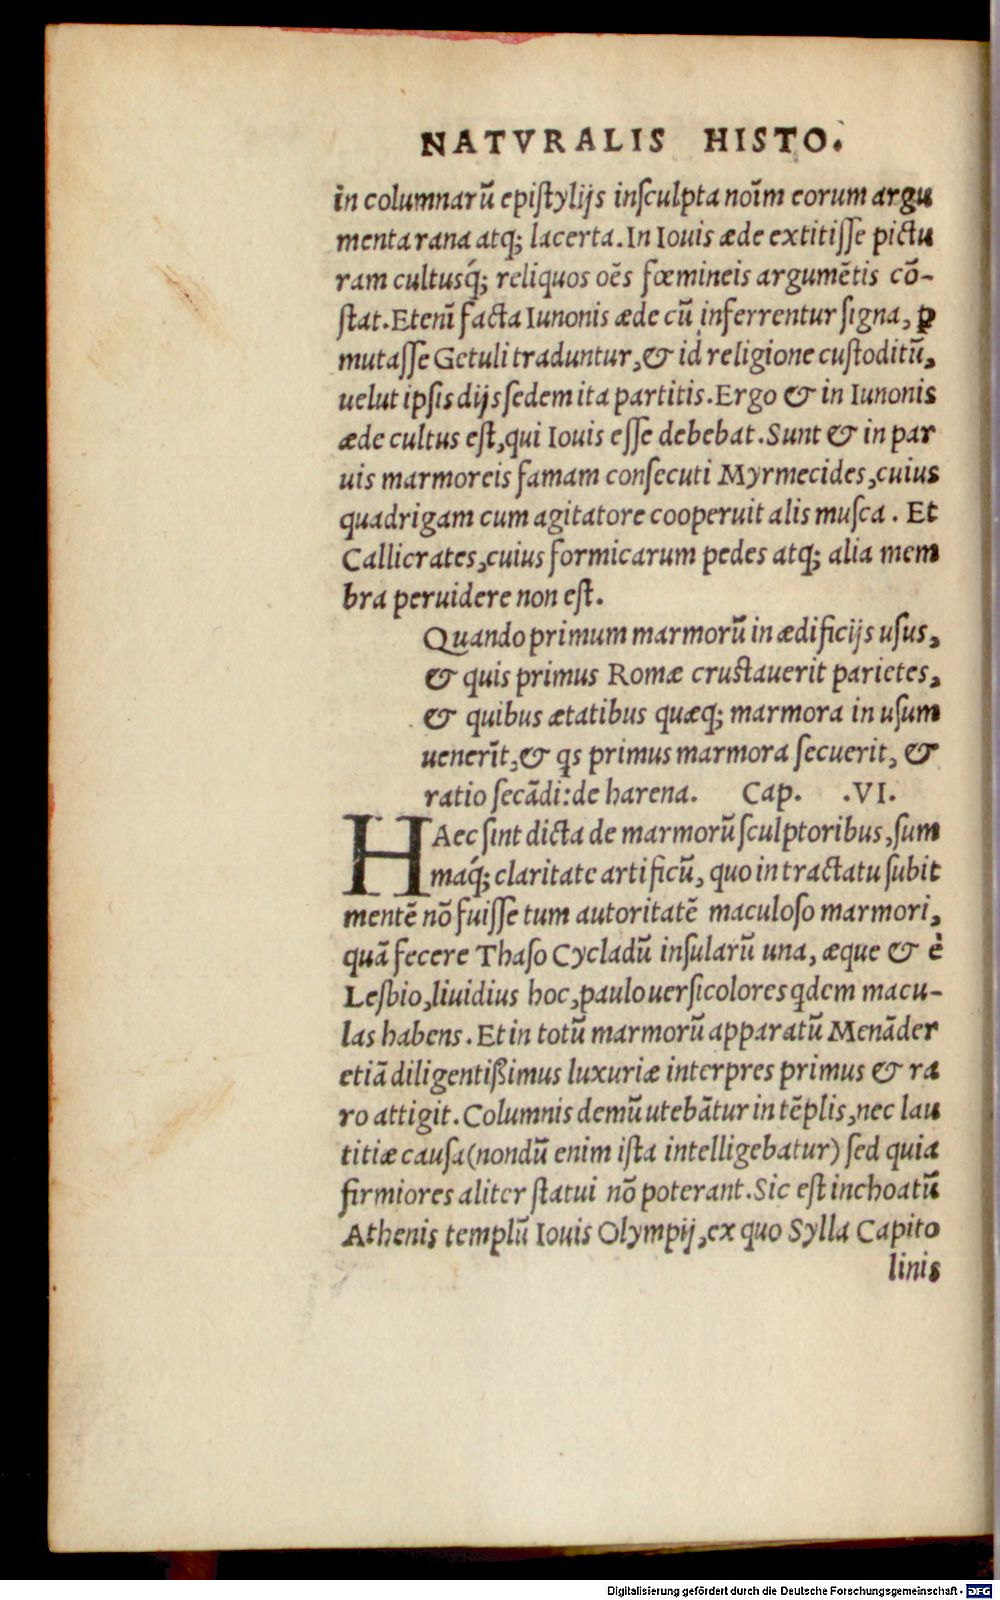 NATVRALIS HISTO.
in columnarũ epistylijs insculpta noĩm eorum argu
menta rana atq; lacerta. In Iouis æde extitisse pictu
ram cultusq́; reliquos oẽs fœmineis argumẽtis cõ-
stat. Etenĩ facta Iunonis æde cũ inferrentur signa, ꝑ
mutasse Getuli traduntur, & id religione custoditũ,
uelut ipsis dijs sedem ita partitis. Ergo & in Iunonis
æde cultus est, qui Iouis esse debebat. Sunt & in par
uis marmoreis famam consecuti Myrmecides, cuius
quadrigam cum agitatore cooperuit alis musca. Et
Callicrates, cuius formicarum pedes atq; alia mem
bra peruidere non est.
Quando primum marmorũ in ædificijs usus,
& quis primus Romæ crustauerit parietes,
& quibus ætatibus quæq; marmora in usum
uenerĩt, & qs primus marmora secuerit, &
ratio secãdi: de harena. Cap. .VI.
HAec sint dicta de marmorũ sculptoribus, sum
maq́; claritate artificũ, quo in tractatu subit
mentẽ nõ fuisse tum autoritatẽ maculoso marmori,
quã fecere Thaso Cycladũ insularũ una, æque & è
Lesbio, liuidius hoc, paulo uersicolores qdem macu-
las habens. Et in totũ marmorũ apparatũ Menãder
etiã diligentißimus luxuriæ interpres primus & ra
ro attigit. Columnis demũ utebãtur in tẽplis, nec lau
titiæ causa (nondũ enim ista intelligebatur) sed quia
firmiores aliter statui nõ poterant. Sic est inchoatũ
Athenis templũ Iouis Olympij, ex quo Sylla Capito
linis
Digitalisierung gefördert durch die Deutsche Forschungsgemeinschaft - DFG